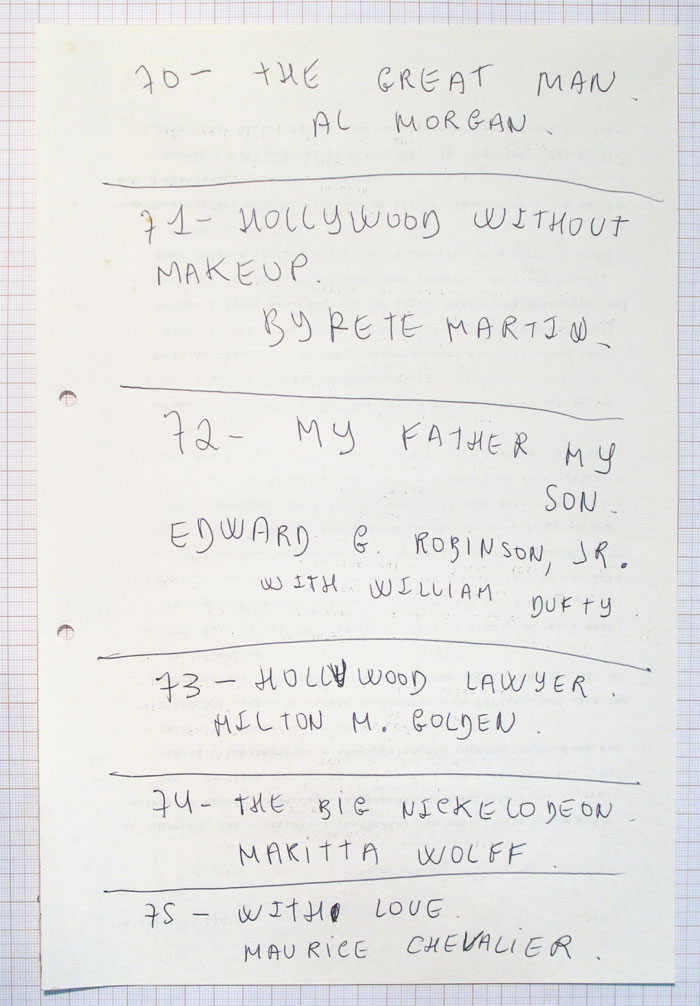 70- THE GREAT MAN.
AL MORGAN.
71- HOLLYWOOD WITHOUT
MAKEUP.
BY PETE MARTIN.
72- MY FATHER MY
SON.
EDWARD G. ROBINSON, JR.
WITH WILLIAM DUFTY
73- HOLLYWOOD LAWYER.
MILTON M. GOLDEN.
74- THE BIG NICKELODEON.
MARITTA WOLFF.
75- WITH LOVE.
MAURICE CHEVALIER.